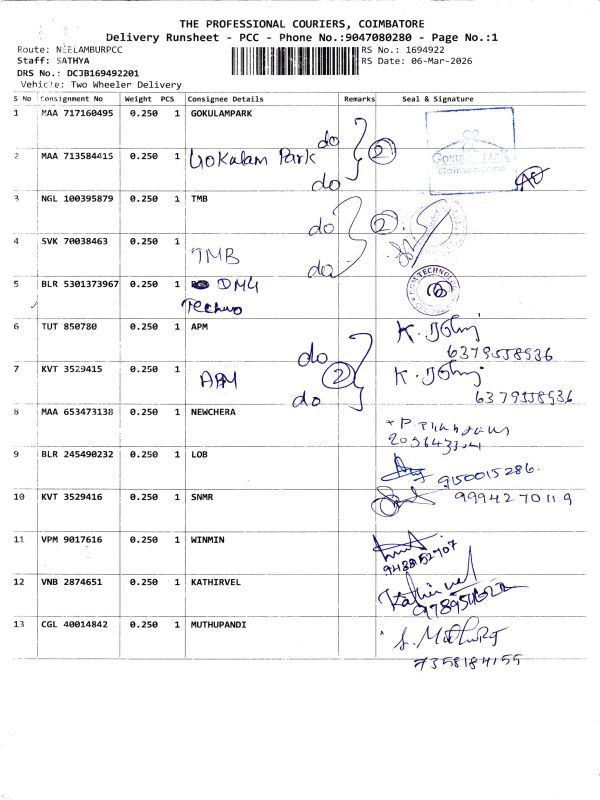 THE PROFESSIONAL COURIERS, COIMBATORE
Delivery Runsheet - PCC - Phone No.:9047080280 - Page No.:1
Route: NEELAMBURPCC
RS No.: 1694922
Staff: SATHYA
RS Date: 06-Mar-2026
DRS No.: DCJB169492201
Vehicle: Two Wheeler Delivery
S No Consignment No Weight PCS Consignee Details Remarks Seal & Signature
1 MAA 717160495 0.250 1 GOKULAMPARK
do
2 MAA 713584415 0.250 1 Gokulam Park 2
do
GOKULAM PARK
Coimbatore
3 NGL 100395879 0.250 1 TMB
do 2
4 SVK 70038463 0.250 1
TMB do
5 BLR 5301373967 0.250 1 DM4
Techno
6 TUT 850780 0.250 1 APM
do
K. 
6379558936
7 KVT 3529415 0.250 1 APM 2
do
K. 
6379558936
8 MAA 653473138 0.250 1 NEWCHERA
P.
9 BLR 245490232 0.250 1 LOB
9150015286.
10 KVT 3529416 0.250 1 SNMR
9994270119
11 VPM 9017616 0.250 1 WINMIN
12 VNB 2874651 0.250 1 KATHIRVEL
Kathirvel
13 CGL 40014842 0.250 1 MUTHUPANDI
7358184155